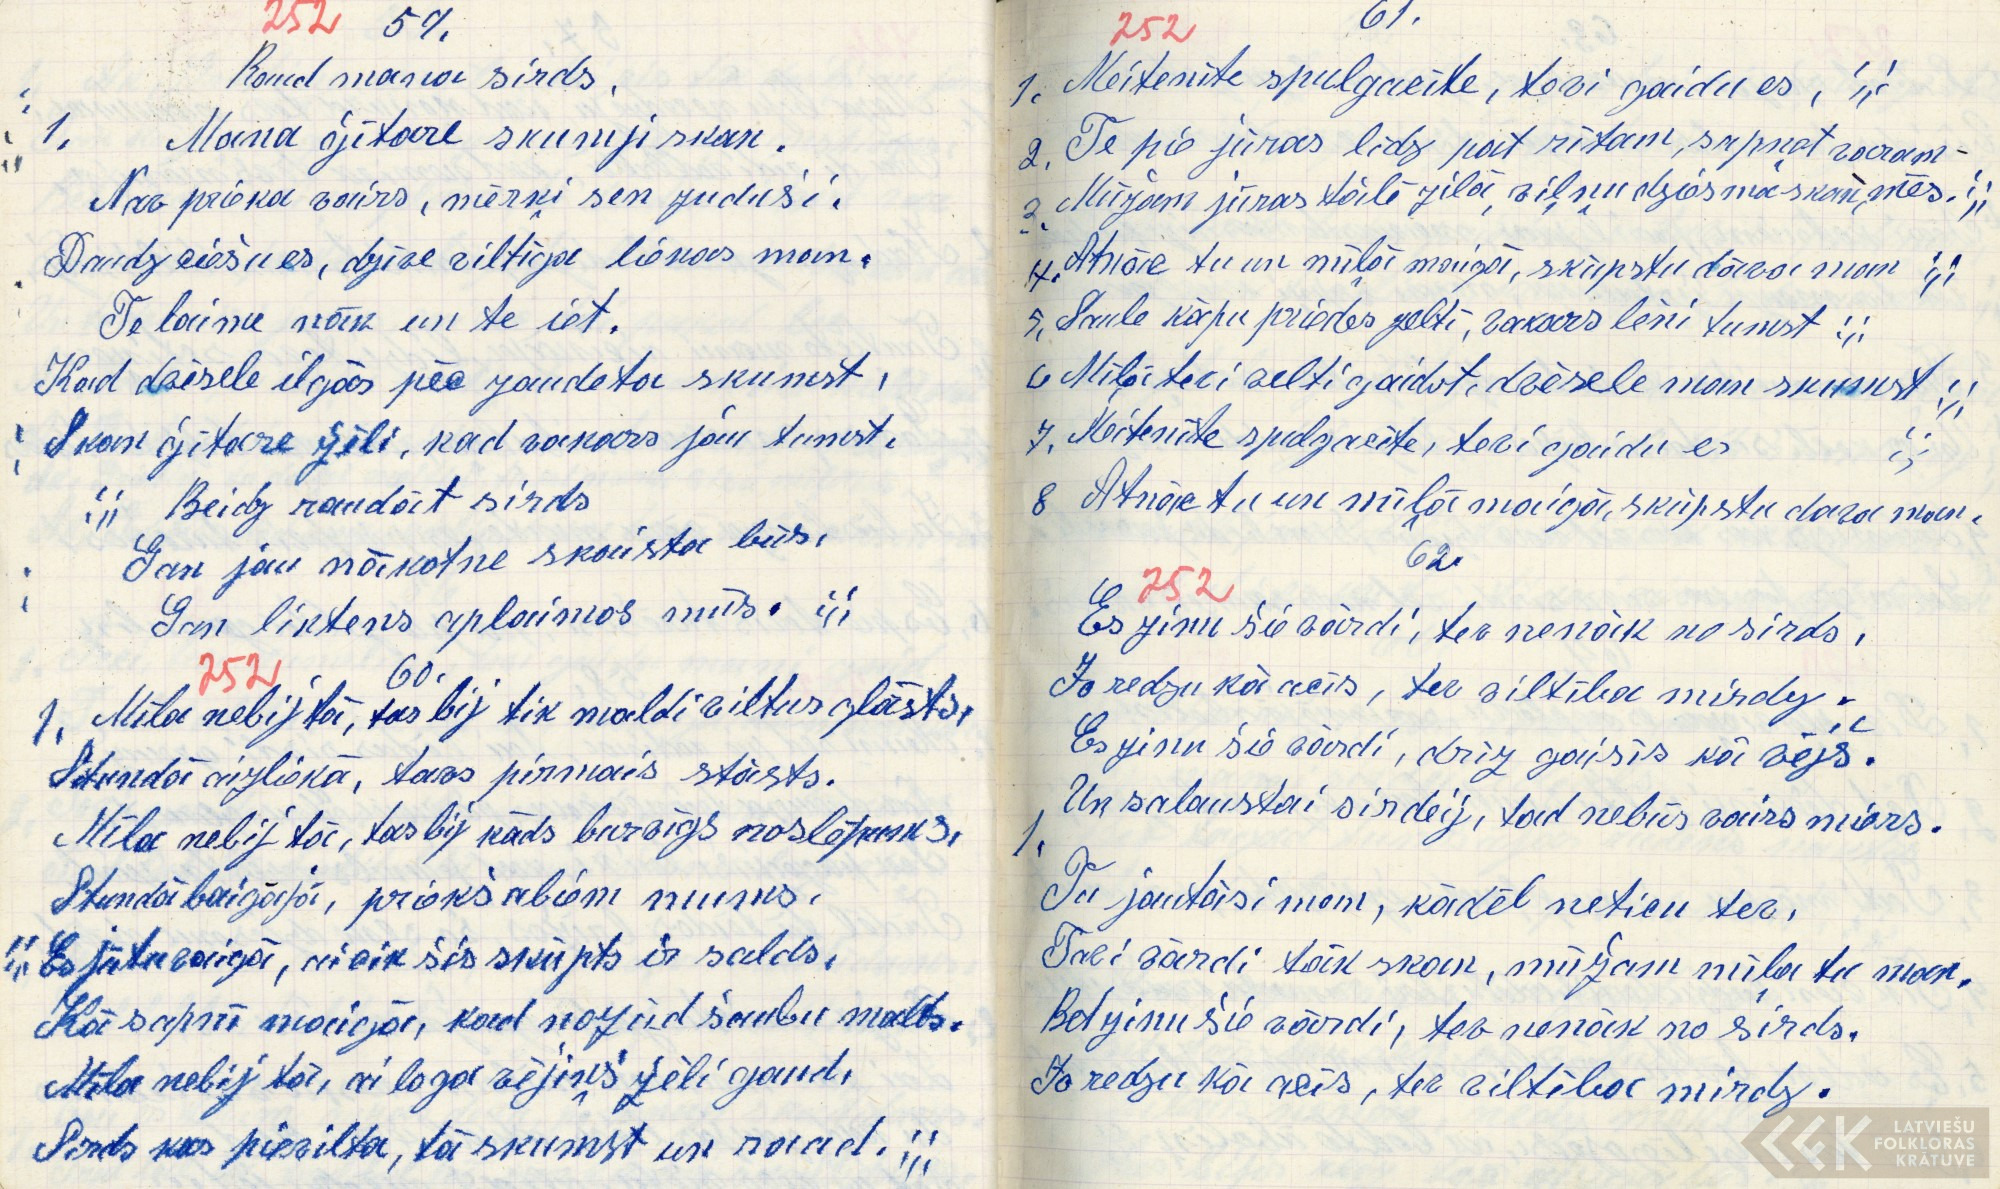 252 59.
Raud mana sirds.
1. Mana ģitare skumji skan.
Nav prieka vairs, mērķi sen zuduši.
Daudz ciešu es, dzīve viltīga liekas man.
Te laime nāk un te iet.
Kad dvēsele ilgās pēc zaudēta skumst,
Skan ģitare žēli, kad vakars jau tumst.
;;; Beidz raudāt sirds
Gan jau nākotne skaista būs.
Gan liktens aplaimos mūs. ;;;
252 60.
1. Mīla nebij tā, tas bij tik maldi viltus glāsts,
Stundā aizliekā, tavs pirmais stāsts.
Mīla nebij tā, tas bij kāds burvīgs noslēpums,
Stundā baigajā, priekš abiem mums.
;;; Es jūtu vaigā, ai cik šis skūpts ir salds,
Kā sapnī maigā, kad nozūd šaubu malds.
Mīla nebij tā, ai loga vējiņš žēli gaud,
Sirds kas pievilta, tā skumst un raud. ;;;
252 61.
1. Meitenīte spulgacīte, tevi gaidu es, ;;;
2. Te pie jūras līdz pat rītam, sapņot varam-
3. Mūžam jūras tālē zilā, viļņu dziesma skan, mēs. ;;;
4. Atnāc tu un mīļā maigā, skūpstu dāva man ;;;
5. Saule kāpu priedes zeltī, vakars lēni tumst ;;;
6 Mīļā tevi velti gaidot, dvēsele man skumst ;;;
7. Meitenīte spulgacīte, tevi gaidu es ;;;
8 Atnāc tu un mīļā maigā, skūpstu dava man.
62.
252
Es zinu šie vārdi, tev nenāk no sirds,
Jo redzu kā acīs, tev viltība mirdz.
Es zinu šie vārdi, drīz gaisīs kā vējš.
Un salaustai sirdeij, tad nebūs vairs miers.
1.
Tu jautāsi man, kādēļ neticu tev,
Tavi vārdi tāk skan, mūžam mīļa tu man.
Bet zinu šie vārdi, tev nenāk no sirds.
Jo redzu kā acīs, tev viltība mirdz.
LATVIEŠU
FOLKLORAS
KRĀTUVE